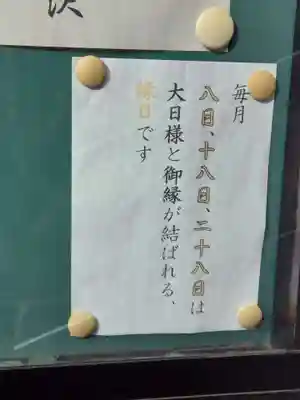 毎月
八日、十八日、二十八日は
大日様と御縁が結ばれる、
縁日です